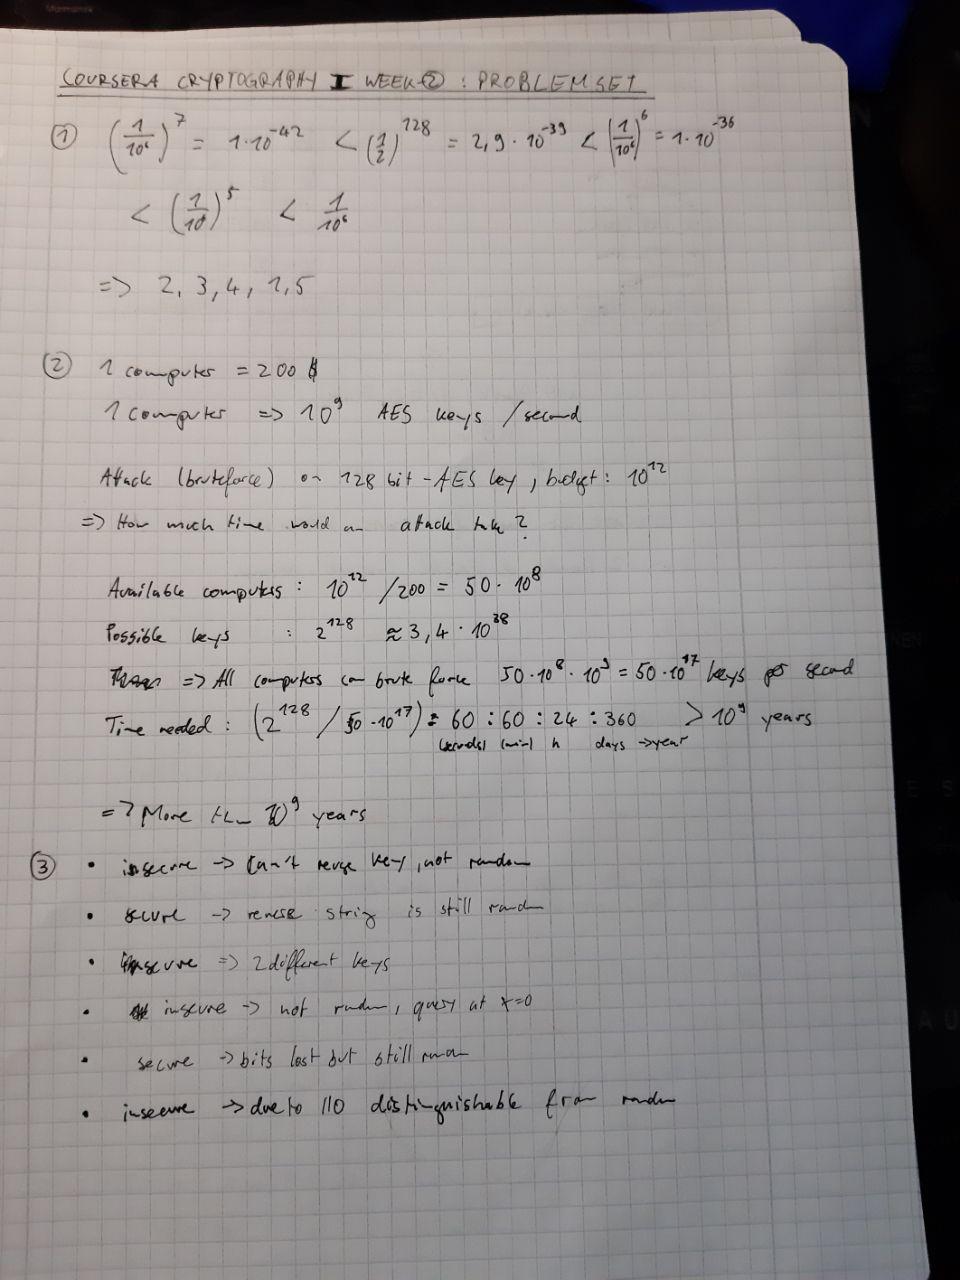 COURSERA CRYPTOGRAPHY I WEEK 2 : PROBLEMSET
① (1/10⁶)⁷ = 1·10⁻⁴² < (1/2)¹²⁸ = 2,9·10⁻³⁹ < (1/10⁶)⁶ = 1·10⁻³⁶
< (1/10⁶)⁵ < 1/10⁶
=> 2, 3, 4, 1, 5
② 1 computer = 200 $
1 computer => 10⁹ AES keys / second
Attack (bruteforce) on 128 bit - AES key, budget: 10¹²
=> How much time would an attack take?
Available computers : 10¹² / 200 = 50 · 10⁸
Possible keys : 2¹²⁸ ≈ 3,4 · 10³⁸
=> All computers can brute force 50·10⁸ · 10⁹ = 50·10¹⁷ keys per second
Time needed : (2¹²⁸ / 50·10¹⁷) : 60 : 60 : 24 : 360 > 10⁹ years
(seconds) (min) h days -> year
=> More than 10⁹ years
③ • insecure -> Can't reuse key, not random
• secure -> reverse string is still random
• => 2 different keys
• insecure -> not random, query at x=0
• secure -> bits lost but still random
• insecure -> due to 110 distinguishable from random